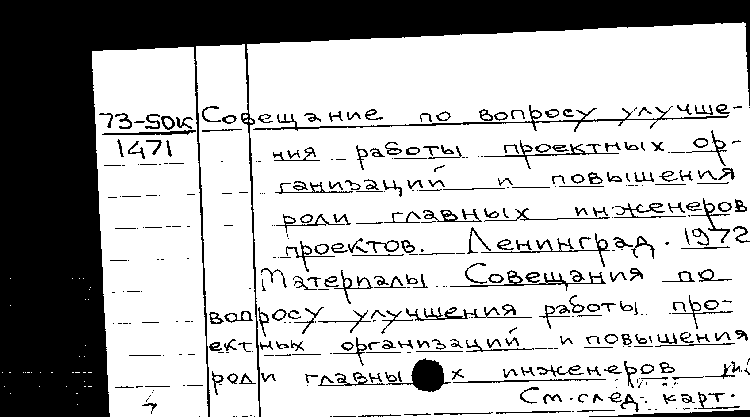 73-50к Совещание по вопросу улучше-
1471 ния работы проектных ор-
ганизаций и повышения
роли главных инженеров
проектов. Ленинград. 1972
Материалы Совещания по
вопросу улучшения работы про-
ектных организаций и повышения
роли главных инженеров
См. след. карт.